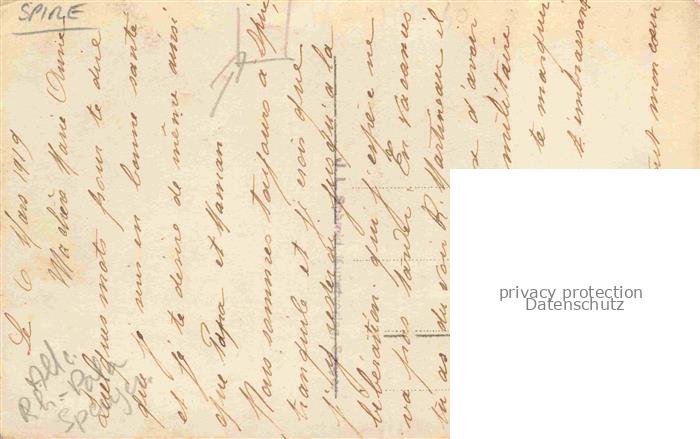 SPIRE
Le 6 Mars 1919
Ma chère Marie Annie
Quelques mots pour te dire
que je suis en bonne santé
et je te désire de même ainsi
que Papa et Maman
Nous sommes toujours à Spire
tranquile et je crois que
j'y rester jusqu'à la
libération que j'espère ne
va pas tarder. En vacances
tu as du voir R. Martineau il
d'avoir
militaire
te marquer
t'embrassant
mon coeur
Allc.
Rh.-Pala
Speyer
privacy protection
Datenschutz